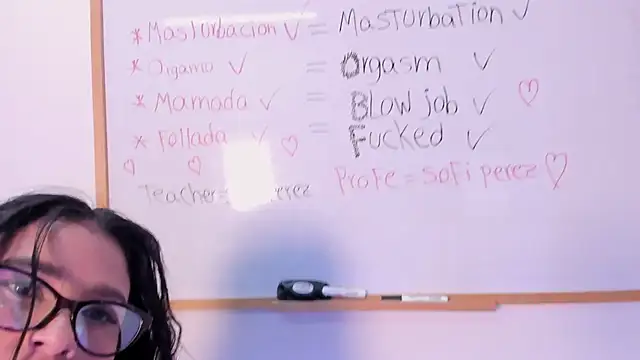 *Masturbacion ✓ = Masturbation ✓
*Orgamo ✓ = Orgasm ✓
*Mamada ✓ = Blow job ✓
*Follada ✓ = Fucked ✓
Teacher= erez Profe = sofi perez